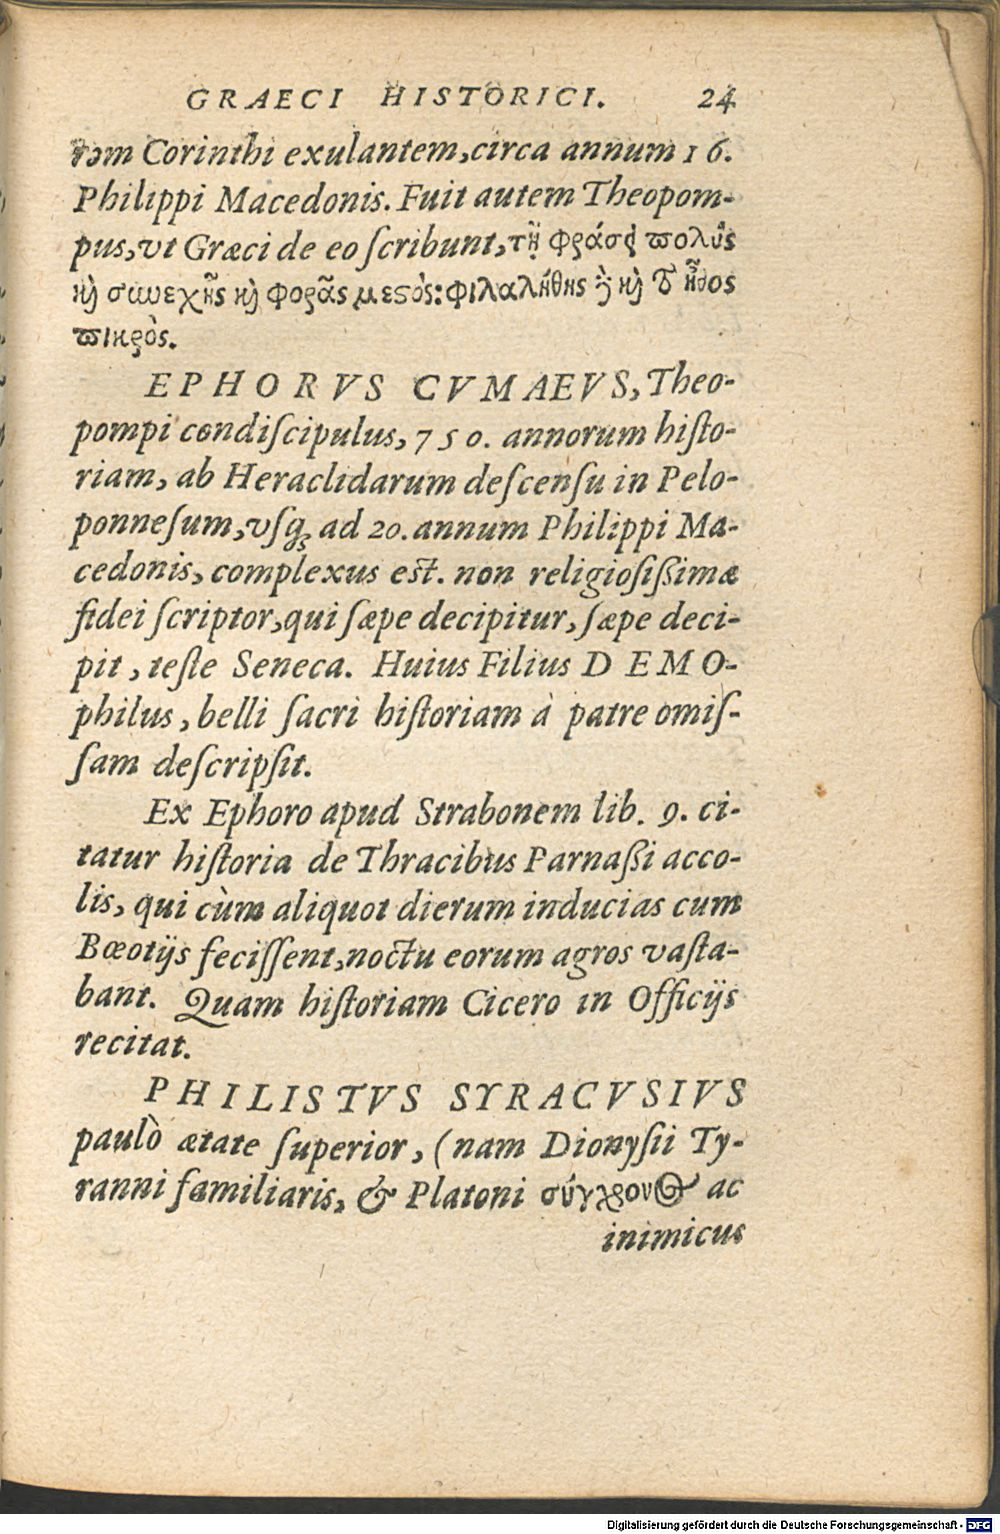 GRAECI HISTORICI. 24
rem Corinthi exulantem,circa annum 16.
Philippi Macedonis. Fuit autem Theopom-
pus,vt Græci de eo ſcribunt,τῇ φράσϗ πολὺς
ϗ συνεχὴς ϗ φορᾶς μεϛός:φιλαλήθης ϗ τὸ ἦθος
πικρὸς.
EPHORVS CVMAEVS, Theo-
pompi condiſcipulus, 750. annorum hiſto-
riam, ab Heraclidarum deſcenſu in Pelo-
ponneſum,vſq́ꝫ ad 20. annum Philippi Ma-
cedonis, complexus est. non religioſißimæ
fidei ſcriptor,qui ſæpe decipitur, ſæpe deci-
pit, teſte Seneca. Huius Filius DEMO-
philus, belli ſacri hiſtoriam à patre omiſ-
ſam deſcripſit.
Ex Ephoro apud Strabonem lib. 9. ci-
tatur hiſtoria de Thracibus Parnaßi acco-
lis, qui cùm aliquot dierum inducias cum
Bœotijs feciſſent,noctu eorum agros vaſta-
bant. Quam hiſtoriam Cicero in Officijs
recitat.
PHILISTVS SYRACVSIVS
paulò ætate ſuperior, (nam Dionyſii Ty-
ranni familiaris, & Platoni σύγχρονος ac
inimicus
Digitalisierung gefördert durch die Deutsche Forschungsgemeinschaft - DFG